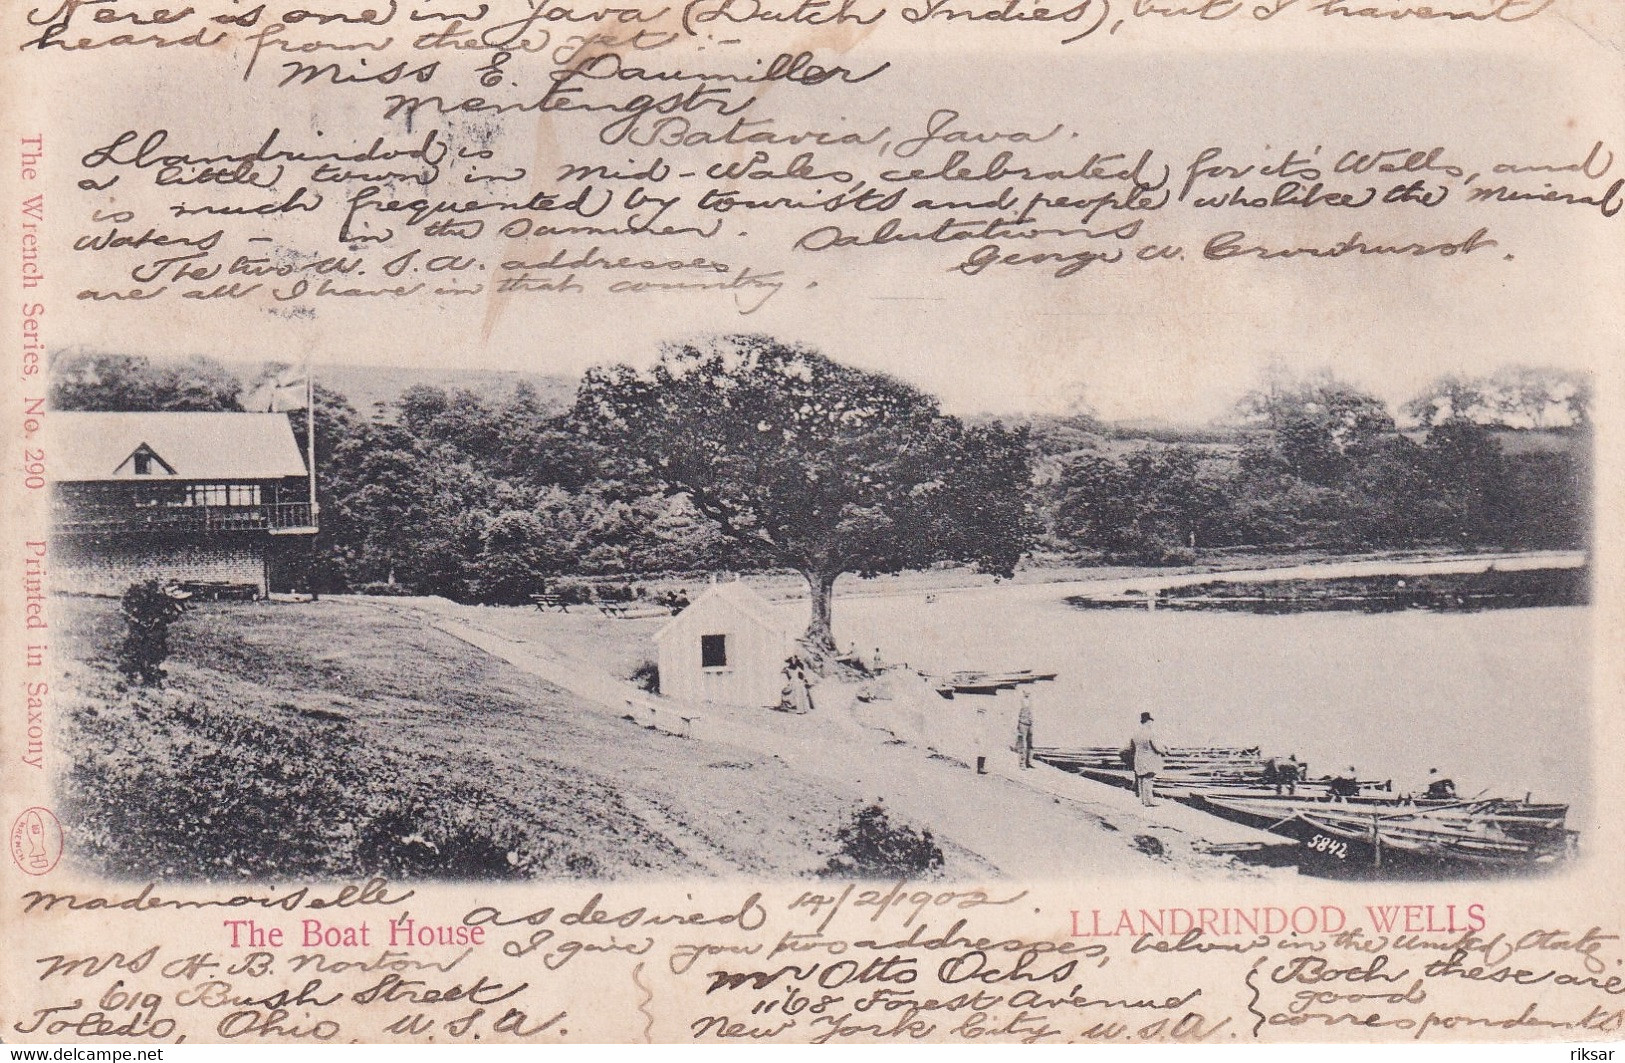 Here is one in Java (Dutch Indies), but I haven't
heard from there yet :-
Miss E. Daumiller
Mentengstr
Batavia, Java.
Llandrindod is
a little town in Mid-Wales, celebrated for it's Wells, and
is much frequented by tourists and people who like the Mineral
Waters - in the Summer. Salutations
George W. Crowhurst.
The two U.S.A. addresses
are all I have in that country.
The Wrench Series, No. 290 Printed in Saxony
WRENCH
5842
Mademoiselle, As desired 14/2/1902.
The Boat House
LLANDRINDOD WELLS
I give you two addresses, below in the United States,
Mrs H. B. Norton
619 Bush Street
Toledo, Ohio, U.S.A.
Mr Otto Ochs
1168 Forest Avenue
New York City, U.S.A.
Both these are
good
correspondents
riksar
www.delcampe.net